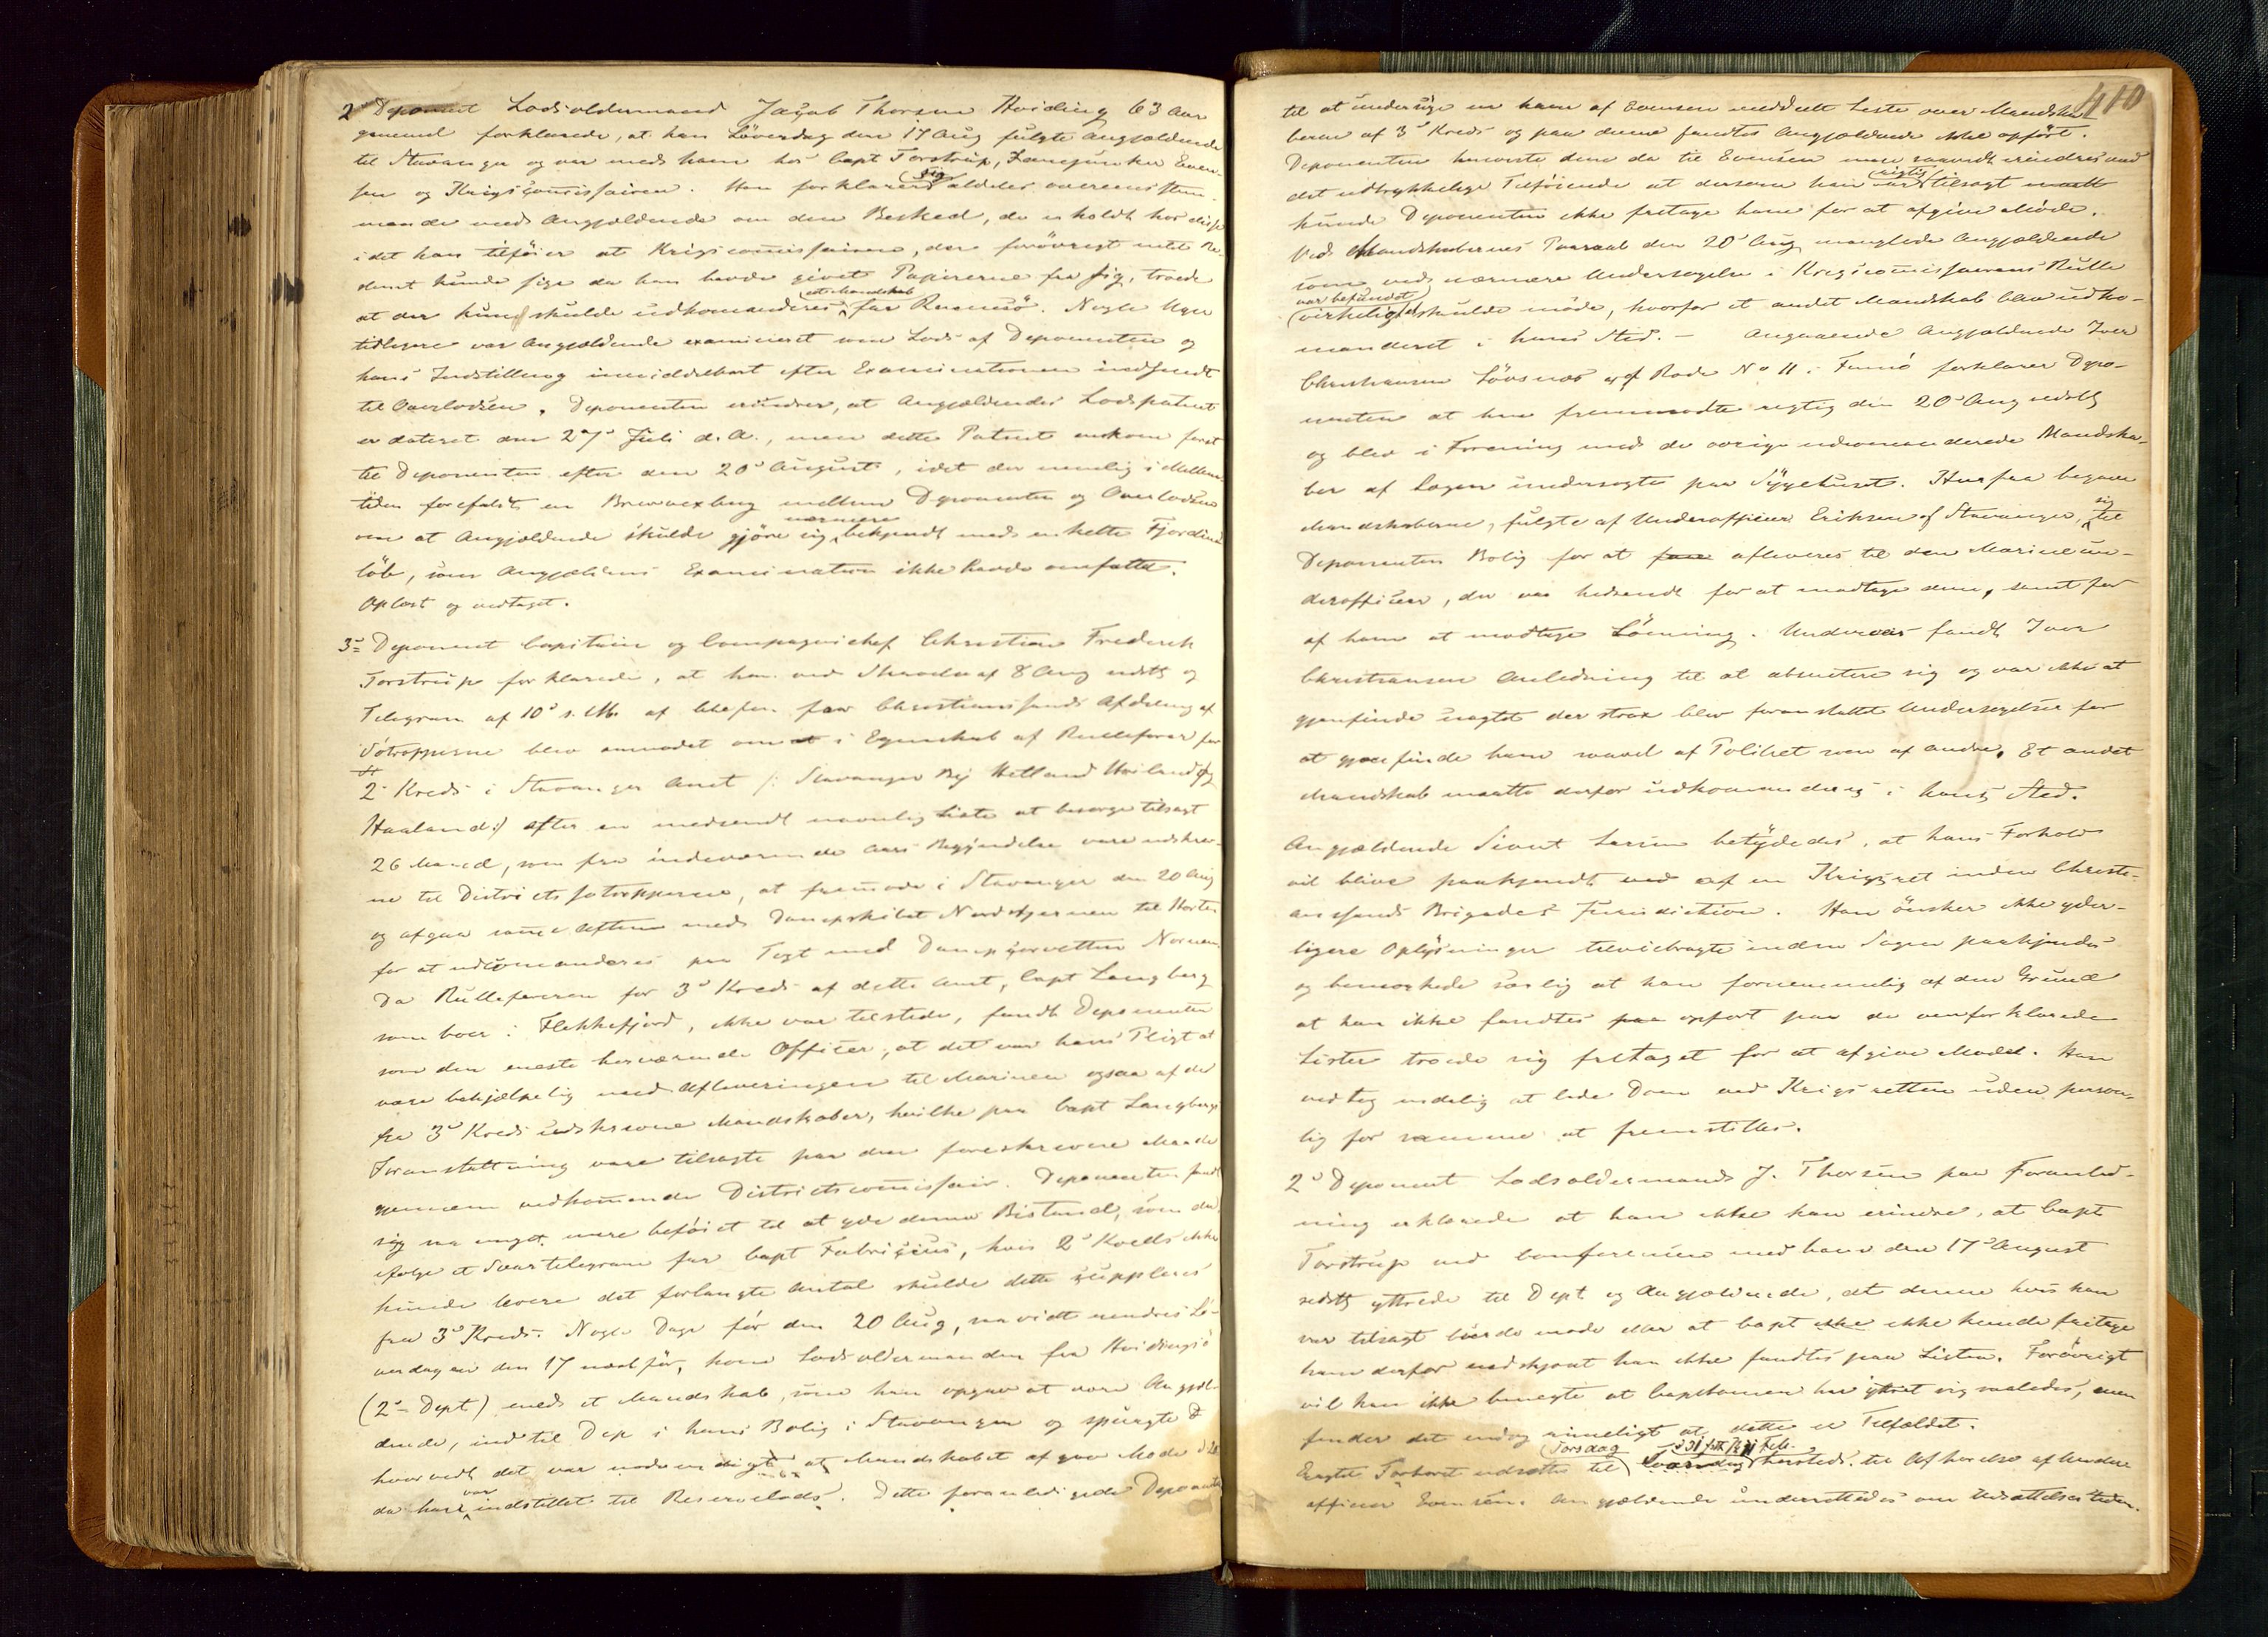 2den Deponent Lodsoldermand Jacob Thorsen Hviding 63 Aar
gammel forklarede, at han Löverdag den 17 Aug fulgte Angjældende
til Stavanger og var med ham hos Capt Torstrup, Fanejunker Even-
sen og Krigscomissairen. Han forklarer sig aldeles overeensstem-
mende med Angjældende om den Besked, de erholdt hos disse
idet han tilföier at Krigscomissairen, der forövrigt intet Be-
stemt kunde sige da han havde givet Papirerne fra sig, troede
at der kun skulde udkomanderes et Mandskab fra Rennesö. Nogle Uger
tidligere var Angjældende examineret som Lods af Deponenten og
hans Indstilling imiddelbart efter Examinationen indsendt
til Overlodsen. Deponenten erindrer, at Angjældendes Lodspatent
er dateret den 27de Juli d. A., men dette Patent ankom først
til Deponenten efter den 20de August, idet der nemlig i Mellem-
tiden forefaldt en Brevvexling mellem Deponenten og Overlodsen
om at Angjældende skulde gjöre sig nærmere bekjendt med enkelte Fjordind-
löb, som Angjældens Examination ikke havde omfattet.
Oplæst og vedtaget.
3die Deponent Capitain og Compagnichef Christian Frederik
Torstrup forklarede, at han ved Skrivelse af 8 Aug sidstl og
Telegram af 10de s. M. af Chefen for Christianssands Afdeling af
Sötropperne blev anmodet om at i Egenskab af Rulleförer for
2den Kreds i Stavanger Amt /: Stavanger By Hetland Höiland og
Haaland:/ efter en medsendt navnlig Liste at besörge tilsagt
26 Mand, som fra indeværende Aars Begyndelse vare udskrev-
ne til Districtssötropperne, at fremmöde i Stavanger den 20 Aug
og afgaa samme Aften med Dampskibet Nordstjernen til Horten
for at udkommanderes paa Togt med Dampcorvetten Nornen.
Da Rulleföreren for 3die Kreds af dette Amt, Capt Langberg
som boer i Flekkefjord, ikke var tilstede, fandt Deponenten
som den eneste herværende Officer, at det var hans Pligt at
være behjælpelig med Afleveringen til Marinen ogsaa af de
fra 3die Kreds udskrevne Mandskaber, hvilke paa Capt Langbergs
Foranstaltning vare tilsagte paa den foreskrevne Maade
gjennem vedkommende Districtscomissair. Deponenten fandt
sig saa meget mere beföiet til at yde denne Bistand, som der
ifölge et Svartelegram fra Capt Fabricius, hvis 2den Kreds ikke
kunde levere det forlangte Antal skulde dette suppleres
fra 3die Kreds. Nogle Dage för den 20 Aug, saavidt erindres Lö-
verdagen den 17 næst för, kom Lodsoldermanden fra Hvidingsö
(2den Dept) med et Mandskab, som han opgav at være Angjæl-
dende, ind til Dep i hans Bolig i Stavanger og spurgte
hvorvidt det var nödvendigt at Mandskabet afgav Möde
da han var indstillet til Reservelods. Dette foranledigede Deponenten
410
til at undersöge en ham af Evensen meddelt Liste over Mandska-
berne af 3die Kreds og paa denne fandtes Angjældende ikke opfört.
Deponenten henviste dem da til Evensen men saavidt erindres med
det udtrykkelige Tilföiende at dersom han var rigtig tilsagt
kunde Deponenten ikke fritage ham for at afgive Möde.
Ved Mandskabernes Paaraab den 20de Aug manglede Angjældende
som ved nærmere Undersögelse i Krigscomissairens Rulle
var befundet virkelig skulde möde, hvorfor et andet Mandskab blev udko-
manderet i hans Sted. – Angaaende Angjældende Iver
Christiansen Lövsnæs af Rode No 11 i Finnö forklarer Depo-
nenten at han fremmödte rigtig den 20de Aug sidstl
og blev i Forening med de övrige udcommanderede Mandska-
ber af Lægen undersögte paa Sygehuset. Herfra begave
Mandskaberne, fulgte af Underofficier Eriksen af Stavanger, sig til
Deponentens Bolig for at afleveres til den Marineun-
derofficer, der var hidsendt for at modtage dem, samt for
af ham at modtage Lönning. Underveis fandt Iver
Christiansen Anledning til at absentere sig og var ikke at
gjenfinde uagtet der strax blev foranstaltet Undersögelse for
at gjenfinde ham saavel af Politiet som af andre. Et andet
Mandskab maatte derfor udkomanderes i hans Sted.
Angjældende Sivert Larsen betydedes, at hans Forhold
vil blive paakjendt ved af en Krigsret inden Christi-
anssands Brigades Jurisdiction. Han önsker ikke yder-
ligere Oplysninger tilveiebragte inden Sagen paakjendes
og bemærkede særlig at han fornemmelig af den Grund
at han ikke fandtes opfört paa de omforklarede
Lister troede sig fritaget for at afgive Möde. Han
vedtog endelig at lide Dom ved Krigsretten uden person-
lig for samme at fremstilles.
2den Deponent Lodsoldermand J. Thorsen paa Foranled-
ning erklærede at han ikke kan erindre, at Capt
Torstrup ved Conferencen med ham den 17de August
sidstl yttrede til Dept og Angjældende, at denne hvis han
var tilsagt burde möde eller at Capt ikke kunde fritage
ham derfor uedskjönt han ikke fandtes paa Listen. Forövrigt
vil han ikke benegte at Capitainen har yttret sig saaledes, men
finder det endog rimeligt at dette er Tilfældet.
Torsdag
Forhöret udsættes til hersteds til Afhörelse af Under-
officer Evensen. Angjældende underrettedes om Udsættelsestiden.